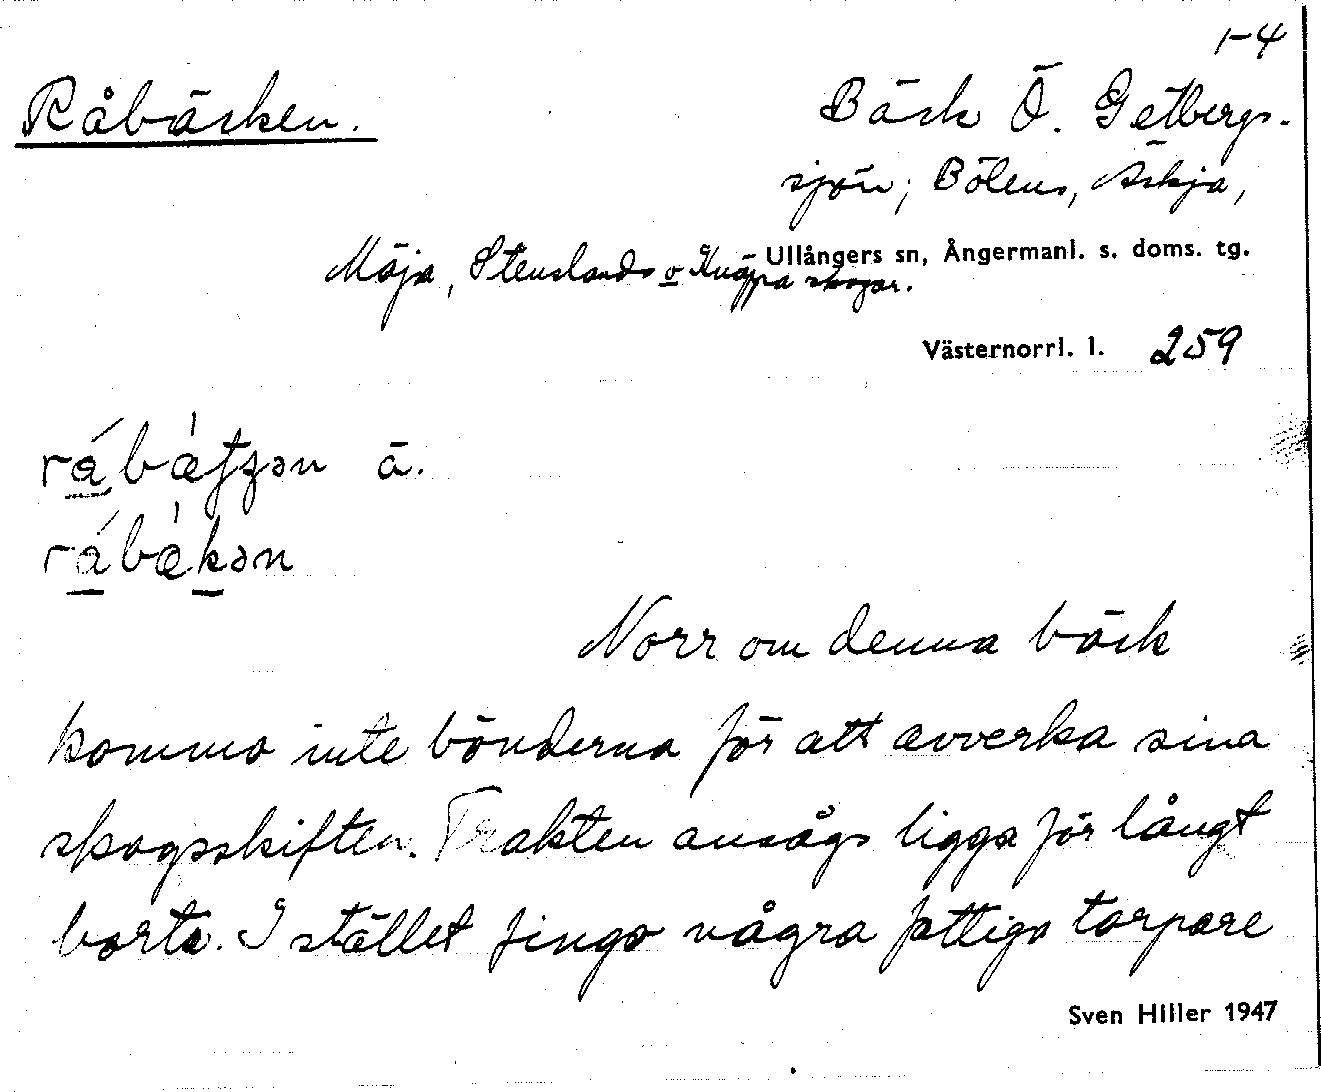 1-4
Råbäcken.
Bäck Ö. Getbergs-
sjön; Bölens, Äskja,
Ullångers sn, Ångermanl. s. doms. tg.
Mäja, Stenslands o Knäppa skogar.
Västernorrl. l. 259
rábæ̀tʃən ä.
rábæ̀kən
Norr om denna bäck
kommo inte bönderna för att avverka sina
skogsskiften. Trakten ansågs ligga för långt
borta. I stället fingo några fattiga torpare
Sven Hiller 1947